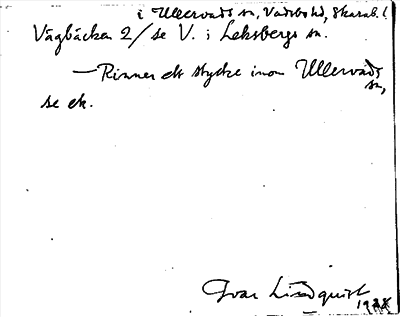 i Ullervads sn, Vadsbo hd, Skarab. l
Vägbäcken 2/ se V. i Leksbergs sn.
— Rinner ett stycke inom Ullervads
sn,
se ek.
Ivar Lindquist